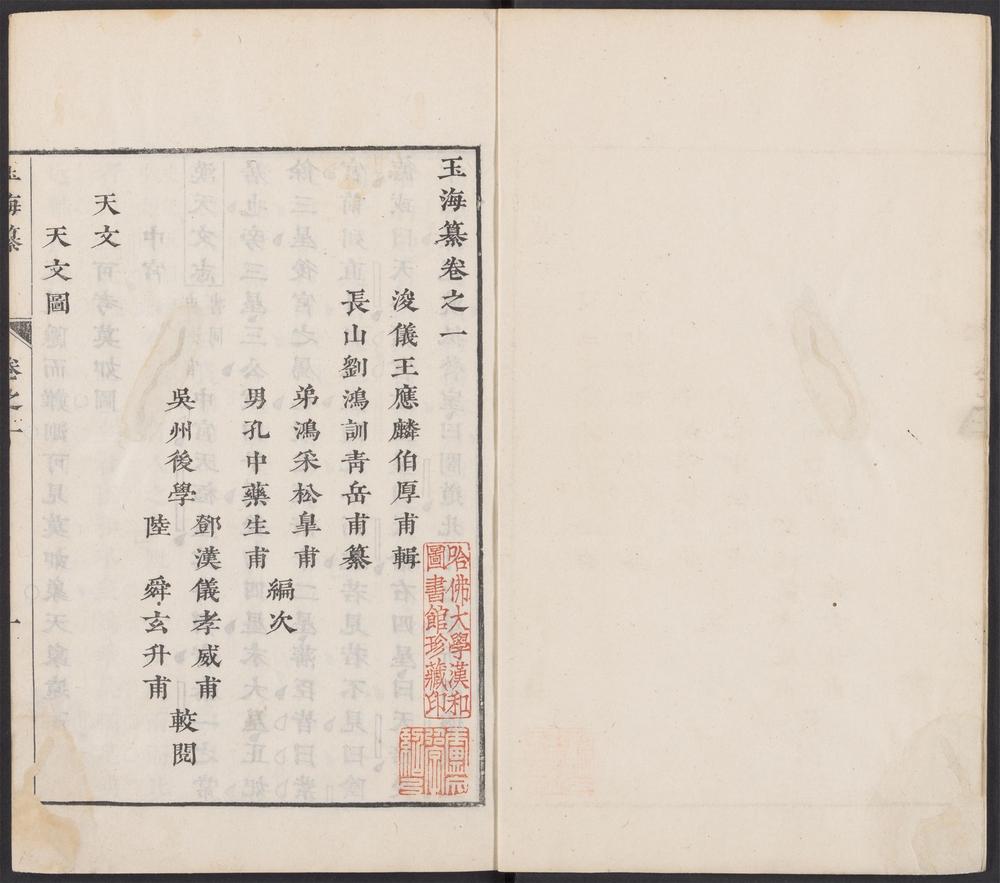 玉海纂卷之一
浚儀王應麟伯厚甫輯
長山劉鴻訓青岳甫纂
弟鴻采松皐甫
男孔中藥生甫
編次
吳州後學
鄧漢儀孝威甫
陸舜玄升甫
較閱
天文
天文圖
玉海纂
卷之一
一
哈佛大學漢和
圖書館珍藏印